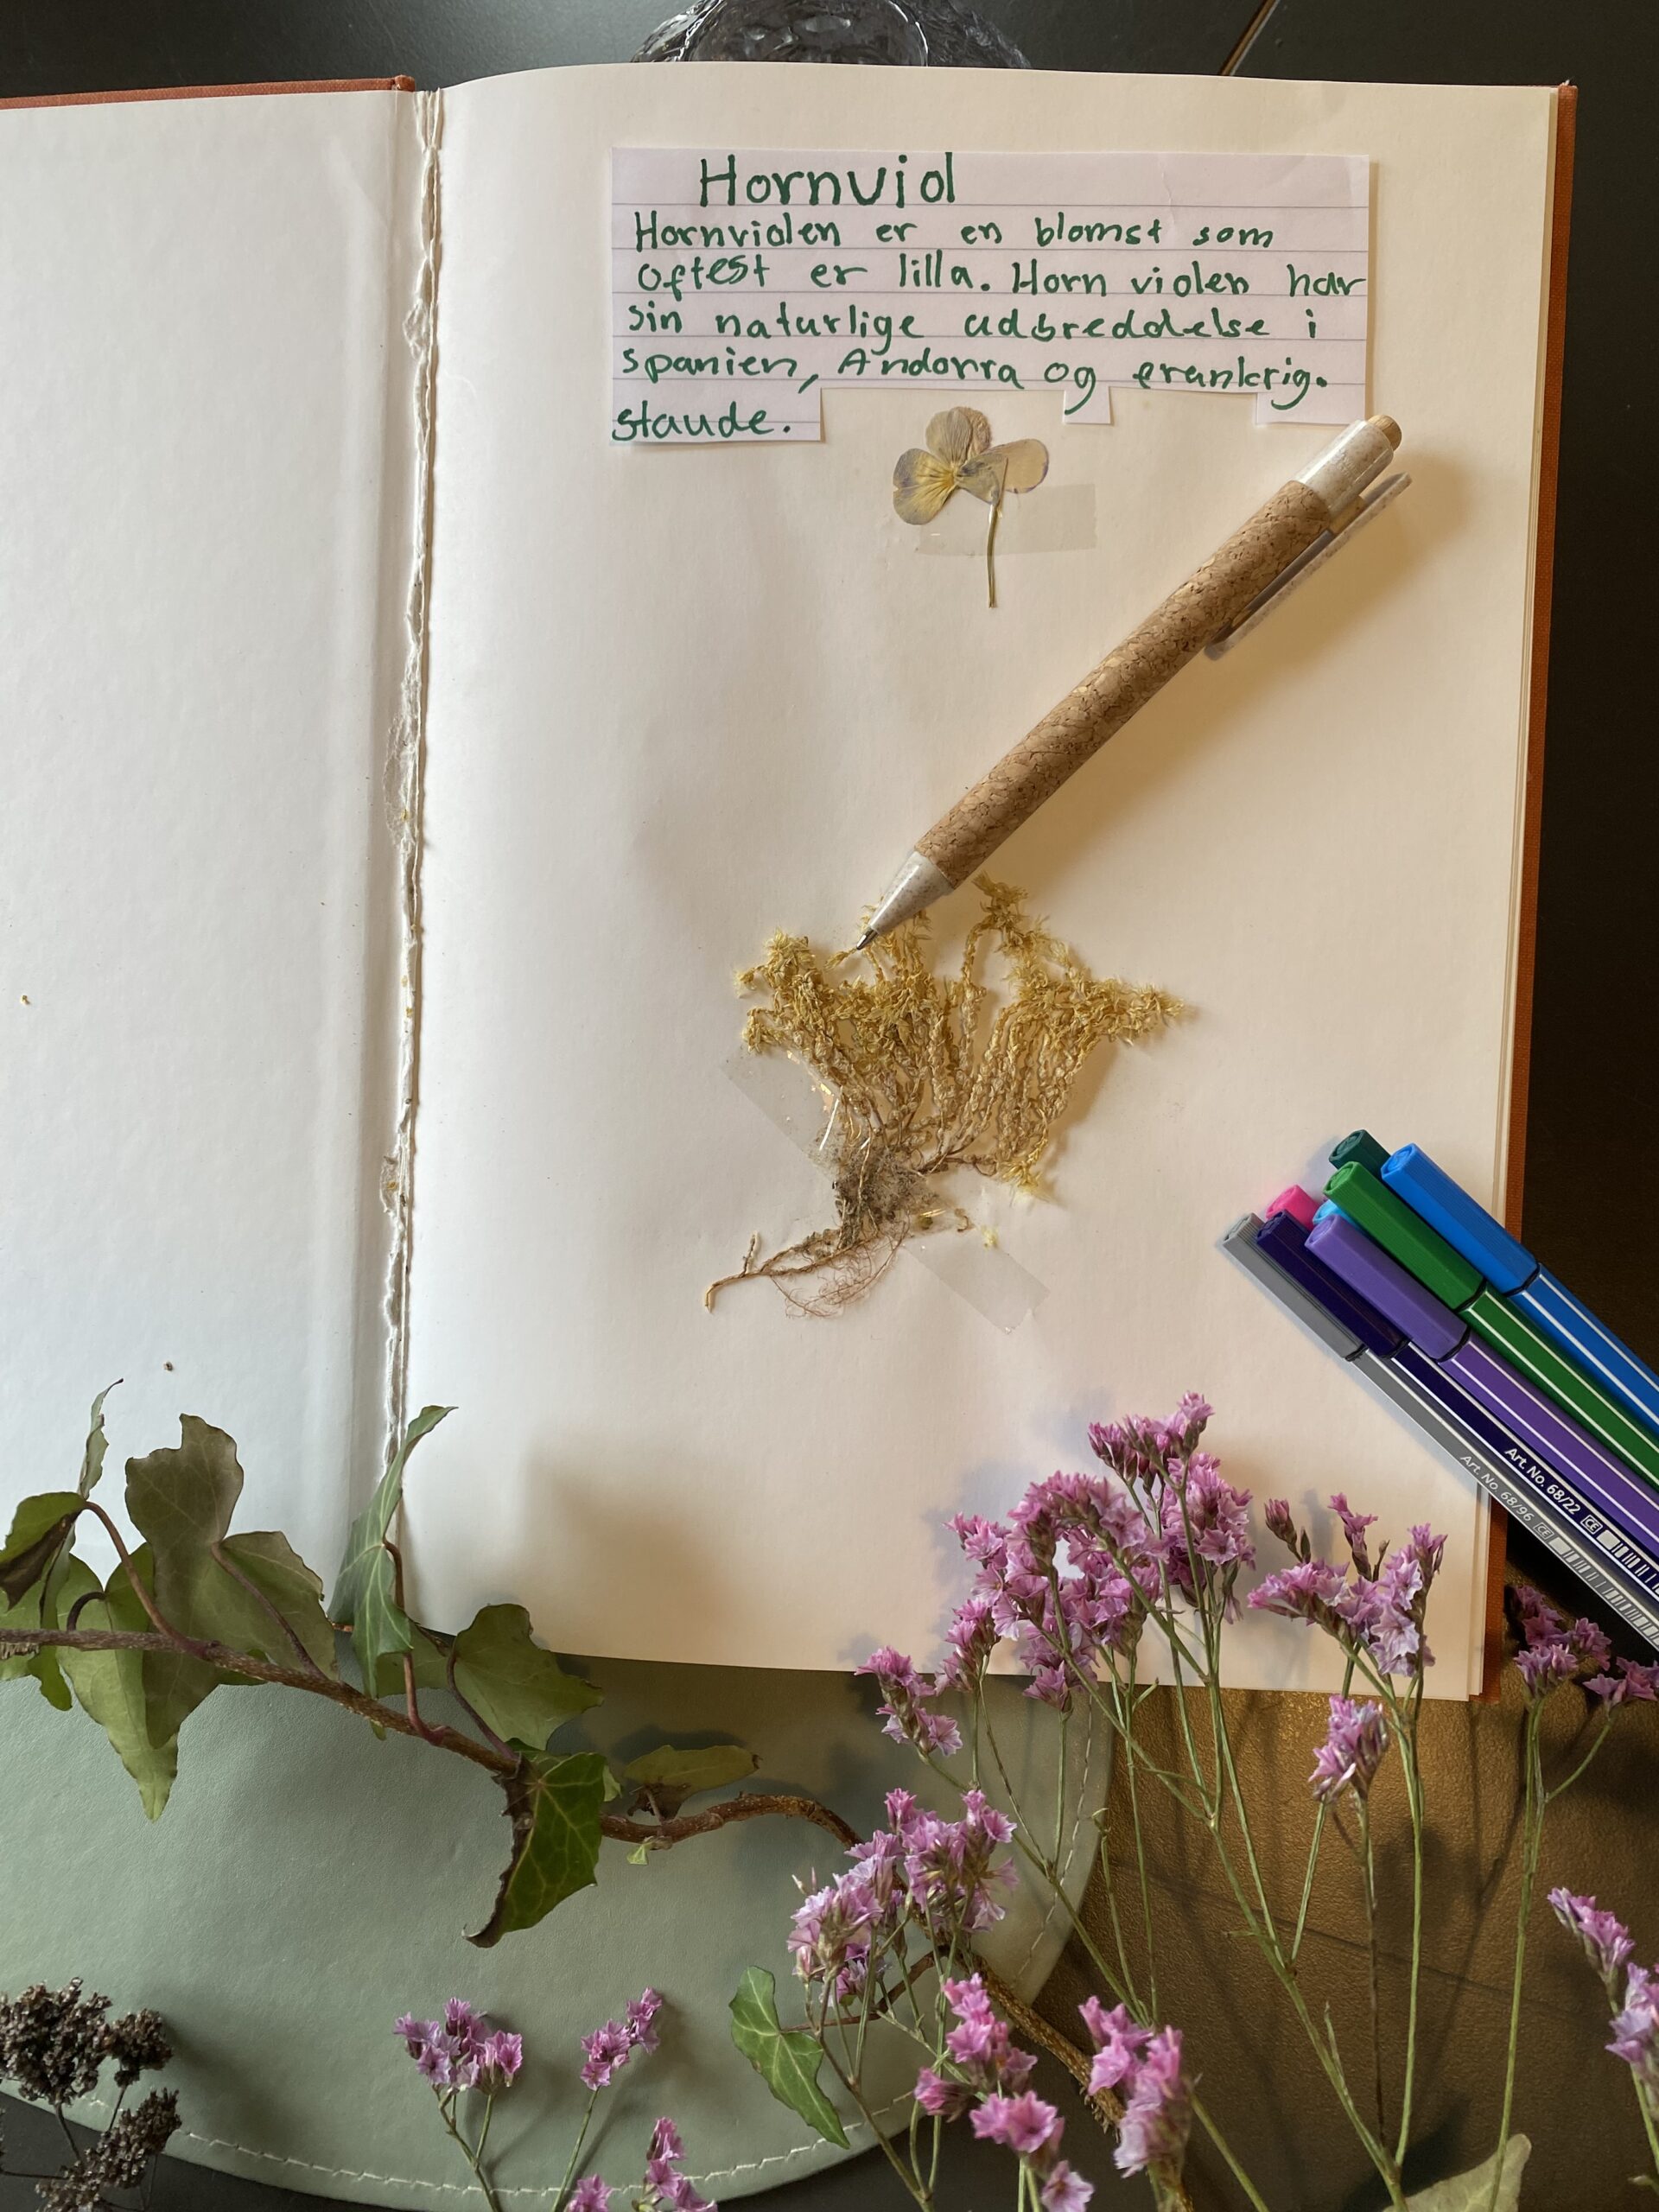 Hornviol
Hornviolen er en blomst som
oftest er lilla. Horn violen har
sin naturlige udbreddelse i
spanien, Andorra og erankrig.
staude.
Art. No. 68/22 CE
Art. No. 68/96 CE